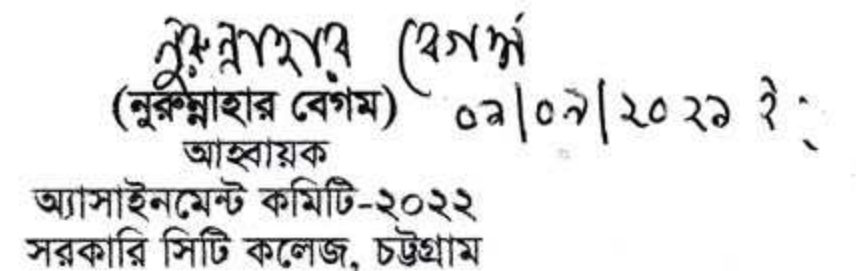 নুরুন্নাহার বেগম
(নুরুন্নাহার বেগম) ০৯/০৯/২০২১ ইং
আহ্বায়ক
অ্যাসাইনমেন্ট কমিটি-২০২২
সরকারি সিটি কলেজ, চট্টগ্রাম